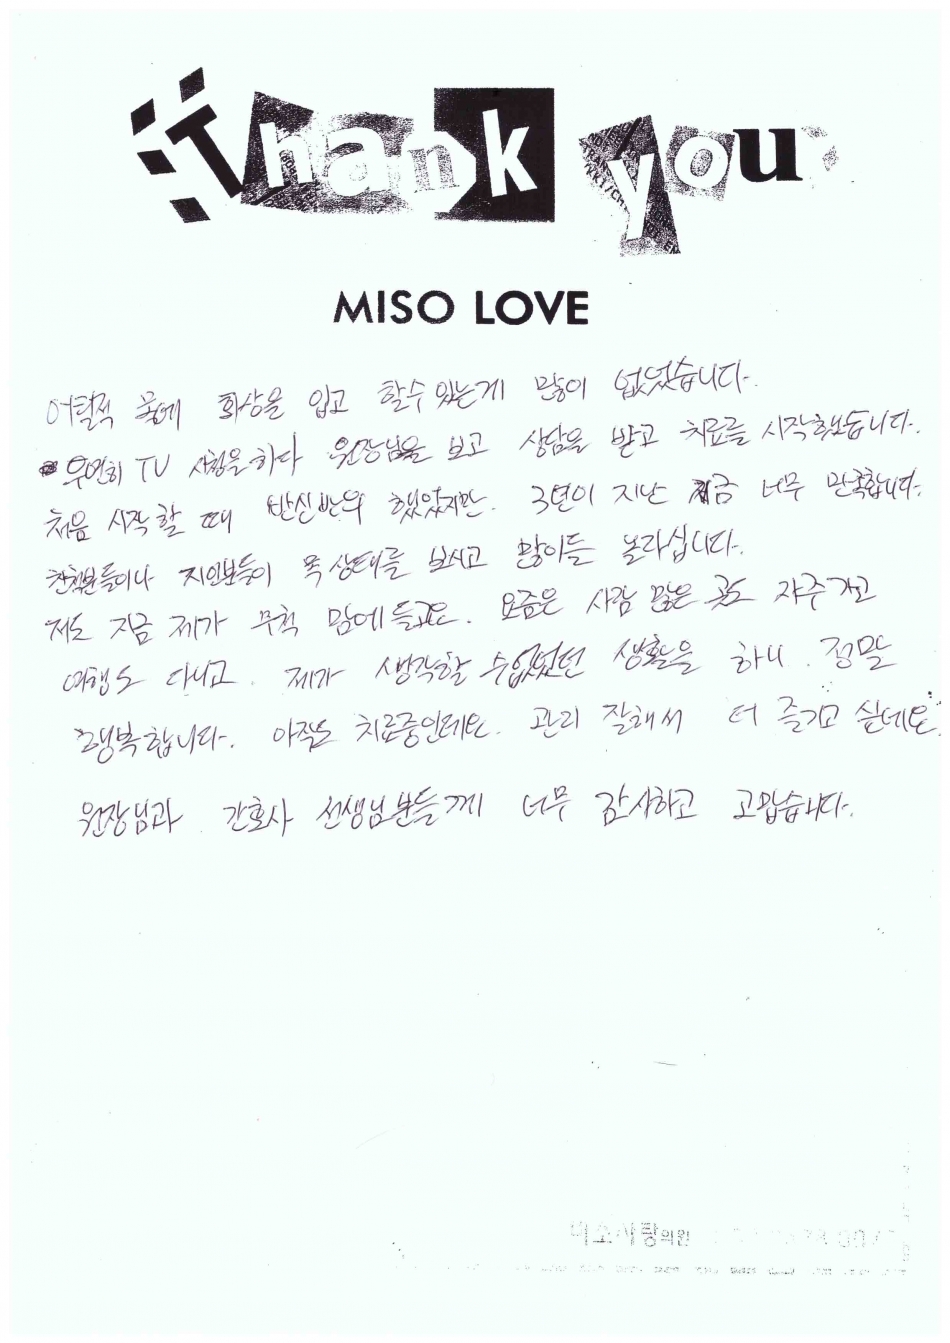 Thank you
MISO LOVE
어릴적 목에 화상을 입고 할수 있는게 많이 없었습니다.
우연히 TV 시청을하다 원장님을 보고 상담을 받고 치료를 시작했습니다.
처음 시작할 때 반신반의 했었지만. 3년이 지난 지금 너무 만족합니다.
친척분들이나 지인분들이 목상태를 보시고 많이들 놀라십니다.
저도 지금 제가 무척 맘에들고요. 요즘은 사람 많은 곳도 자주가고
여행도 다니고. 제가 생각할 수없었던 생활을 하니. 정말
행복합니다. 아직도 치료중인데요. 관리 잘해서 더 즐기고 싶네요.
원장님과 간호사 선생님분들께 너무 감사하고 고맙습니다.
미소사랑의원